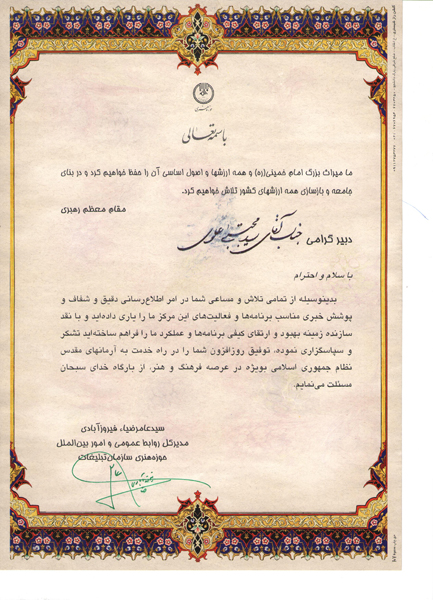 باسمه تعالی
ما میراث بزرگ امام خمینی(ره) و همه ارزشها و اصول اساسی آن را حفظ خواهیم کرد و در بنای
جامعه و بازسازی همه ارزشهای کشور تلاش خواهیم کرد.
مقام معظم رهبری
دبیر گرامی جناب آقای سید مجتبی علوی
با سلام و احترام
بدینوسیله از تمامی تلاش و مساعی شما در امر اطلاع‌رسانی دقیق و شفاف و
پوشش خبری مناسب برنامه‌ها و فعالیت‌های این مرکز ما را یاری داده‌اید و با نقد
سازنده زمینه بهبود و ارتقای کیفی برنامه‌ها و عملکرد ما را فراهم ساخته‌اید تشکر
و سپاسگزاری نموده، توفیق روزافزون شما را در راه خدمت به آرمانهای مقدس
نظام جمهوری اسلامی بویژه در عرصه فرهنگ و هنر، از بارگاه خدای سبحان
مسئلت می‌نمایم.
سیدعامرضیاء فیروزآبادی
مدیرکل روابط عمومی و امور بین‌الملل
حوزه‌هنری سازمان‌تبلیغات